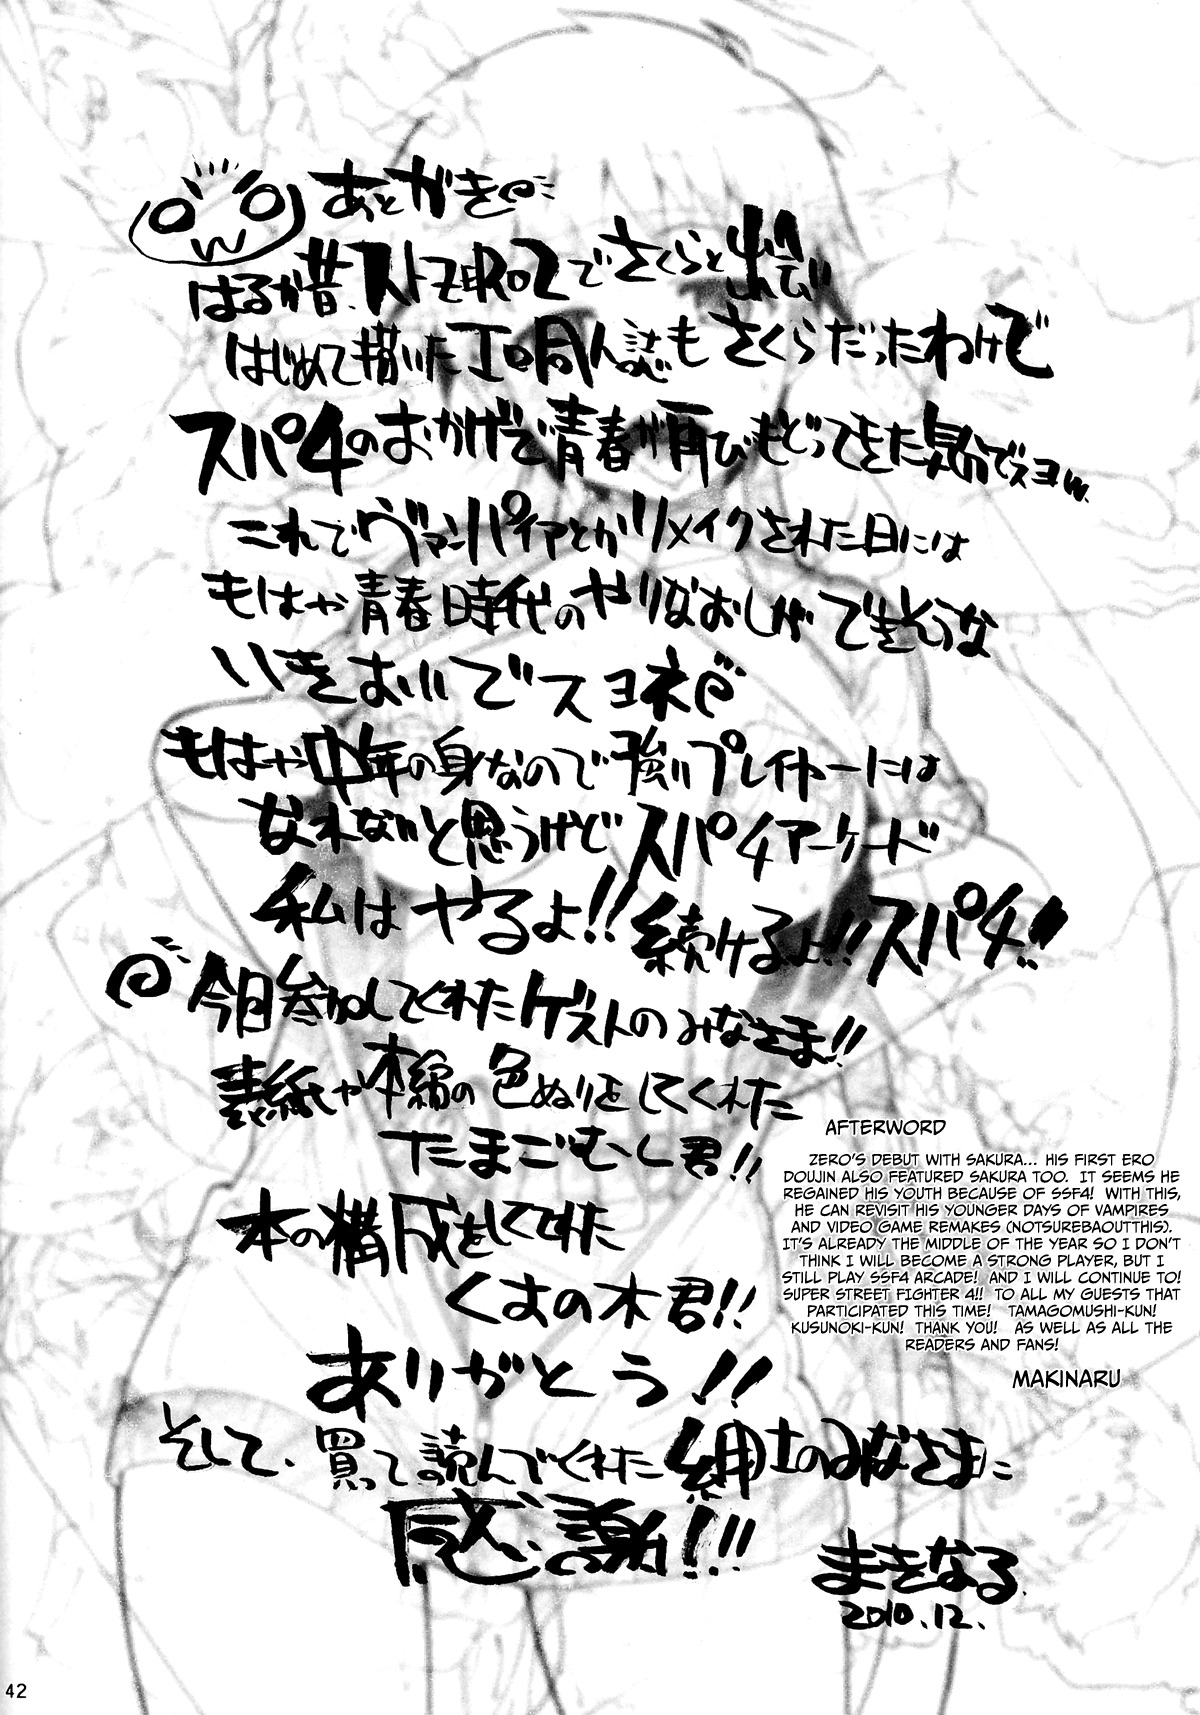 あとがき
はるか昔、ストZERO2でさくらと出会い
はじめて描いたエロ同人誌もさくらだったわけで
スパ4のおかげで青春が再びもどってきた気分でスヨw
これでヴァンパイアとかリメイクされた日には
もはや青春時代のやりなおしができそうな
いきおいでスヨネ
もはや中年の身なので強いプレイヤーには
なれないと思うけどスパ4アーケード
私はやるよ!!続けるよ!!スパ4!!
今回参加してくれたゲストのみなさま!!
表紙や本編の色ぬりをしてくれた
たまごむし君!!
本の構成をしてくれた
くすの木君!!
ありがとう!!
そして、買って読んでくれた紳士のみなさまに
感謝!!!
まきなる
2010.12.
AFTERWORD
ZERO'S DEBUT WITH SAKURA... HIS FIRST ERO
DOUJIN ALSO FEATURED SAKURA TOO. IT SEEMS HE
REGAINED HIS YOUTH BECAUSE OF SSF4! WITH THIS,
HE CAN REVISIT HIS YOUNGER DAYS OF VAMPIRES
AND VIDEO GAME REMAKES (NOTSUREBAOUTTHIS).
IT'S ALREADY THE MIDDLE OF THE YEAR SO I DON'T
THINK I WILL BECOME A STRONG PLAYER, BUT I
STILL PLAY SSF4 ARCADE! AND I WILL CONTINUE TO!
SUPER STREET FIGHTER 4!! TO ALL MY GUESTS THAT
PARTICIPATED THIS TIME! TAMAGOMUSHI-KUN!
KUSUNOKI-KUN! THANK YOU! AS WELL AS ALL THE
READERS AND FANS!
MAKINARU
42